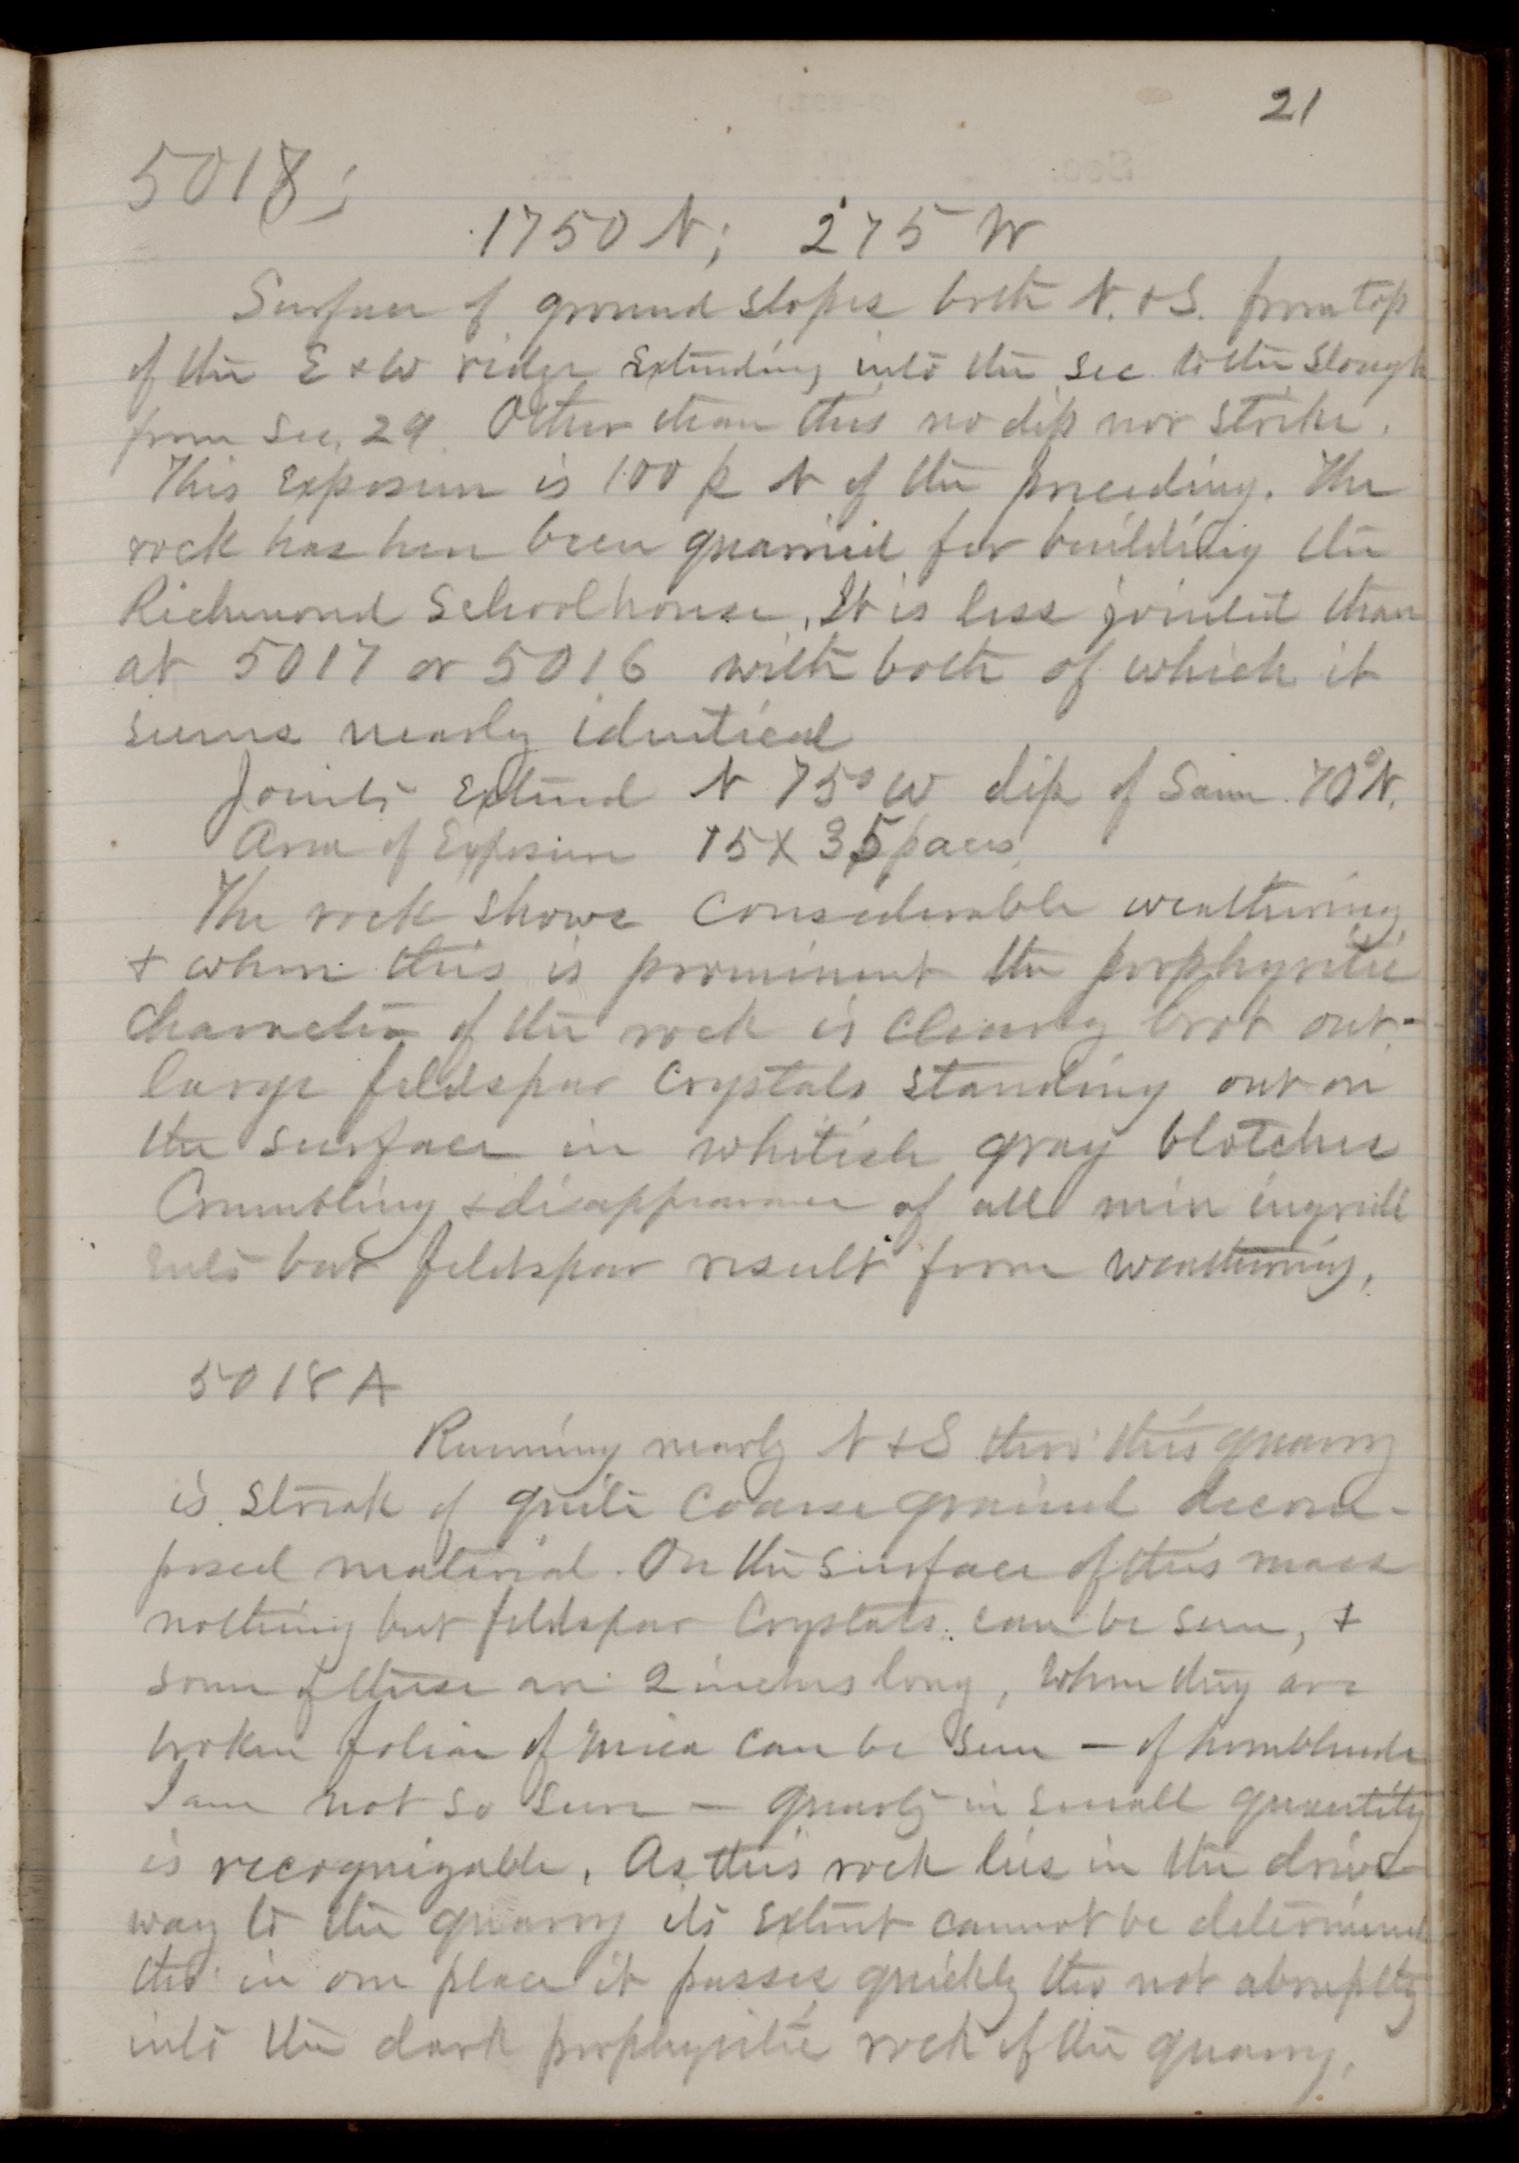 21
5018;
1750 N; 275 W
Surface of ground slopes both N. & S. from top
of the E & W ridge extending into the sec to the slough
from Sec. 29. Other than this no dip nor strike.
This exposure is 100 p N of the preceding. The
rock has here been quarried for building the
Richmond Schoolhouse. It is less jointed than
at 5017 or 5016 with both of which it
seems nearly identical
Joints extend N 75° W dip of same 70° N.
Area of Exposure 15 X 35 paces.
The rock shows considerable weathering
& where this is prominent the porphyritic
character of the rock is clearly brot out -
large feldspar crystals standing out on
the surface in whitish gray blotches
Crumbling & disappearance of all min ingredi
ents but feldspar result from weathering.
5018 A
Running nearly N & S thro' this quarry
is streak of quite coarse grained decom-
posed material. On the surface of this mass
nothing but feldspar crystals can be seen, &
some of these are 2 inches long, When they are
broken foliae of mica can be seen - of hornblende
I am not so sure - quartz in small quantity
is recognizable. As this rock lies in the drive
way to the quarry its extent cannot be determined
tho' in one place it passes quickly tho not abruptly
into the dark porphyritic rock of the quarry.